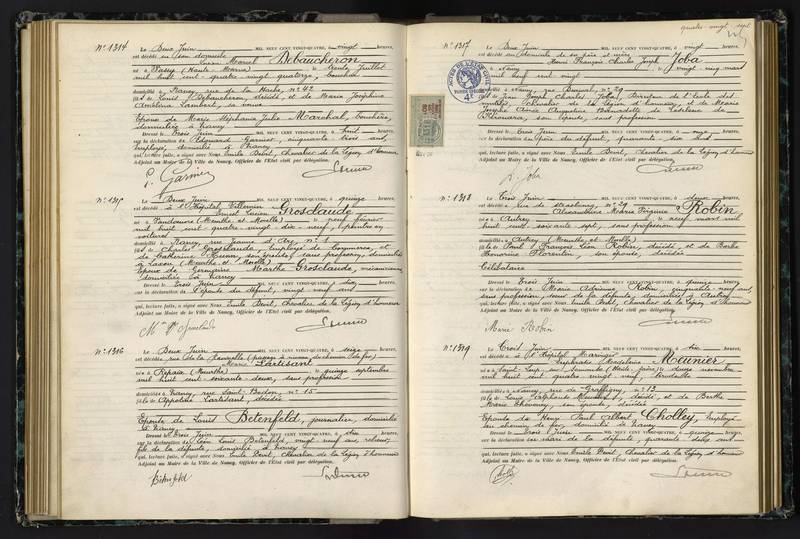 N° 1314
Le Deux Juin MIL NEUF CENT VINGT-QUATRE, à vingt heures,
est décédé en son domicile
Marcel Debaucheron
né à (Haute-Marne) le trente Juillet
mil huit cent quatre vingt quatorze,
domicilié à Nancy, rue de la Hache, n° 42
fils de Louis Debaucheron, décédé, et de Maria Joséphine
Lambert, sa veuve
Epoux de Marie Stéphanie Julia Marchal, bouchère,
domiciliée à Nancy
Dressé le Trois Juin MIL NEUF CENT VINGT-QUATRE, à huit heures,
sur la déclaration de Edouard Garnier, cinquante trois ans,
employé, domicilié à Nancy
qui, lecture faite, a signé avec Nous Emile Devit, Chevalier de la Légion d'honneur
Adjoint au Maire de la Ville de Nancy, Officier de l'État civil par délégation.
Garnier
N° 1315
Le Deux Juin MIL NEUF CENT VINGT-QUATRE, à quinze heures,
est décédé à l'Hôpital Villemin
Lucien Grosclaude
né à (Meurthe et Moselle) le neuf février
mil huit cent quatre vingt dix-neuf, peintre en
voitures
domicilié à Nancy, rue Jeanne d'Arc, n° 1
fils de Charles Grosclaude, employé de commerce, et
de Catherine, son épouse, sans profession, domiciliés
à (Meurthe et Moselle)
Epoux de Germaine Marthe Grosclaude, mécanicienne,
domiciliée à Nancy
Dressé le Trois Juin MIL NEUF CENT VINGT-QUATRE, à dix heures,
sur la déclaration de l'épouse du défunt, vingt neuf ans
qui, lecture faite, a signé avec Nous Emile Devit, Chevalier de la Légion d'honneur
Adjoint au Maire de la Ville de Nancy, Officier de l'État civil par délégation.
N° 1316
Le Deux Juin MIL NEUF CENT VINGT-QUATRE, à seize heures,
est décédée rue de la (passage à niveau du chemin de fer)
Marie Lartisant
née à Repaix (Meurthe) le quinze septembre
mil huit cent soixante-deux, sans profession
domiciliée à Nancy, rue Saint Bodon, n° 15
fille de Lartisant, décédée
Epouse de Louis Betenfeld, journalier, domicilié
à Nancy
Dressé le Trois Juin MIL NEUF CENT VINGT-QUATRE, à dix heures,
sur la déclaration de Louis Betenfeld, vingt neuf ans,
fils de la défunte, domicilié à Nancy
qui, lecture faite, a signé avec Nous Emile Devit, Chevalier de la Légion d'honneur
Adjoint au Maire de la Ville de Nancy, Officier de l'État civil par délégation.
Betenfeld
quatre-vingt-sept
N° 1317
Le Deux Juin MIL NEUF CENT VINGT-QUATRE, à vingt heures,
est décédé au domicile de ses père et mère
Henri François Charles Joseph Joba
né à Nancy le vingt-cinq mars
mil neuf cent vingt
domicilié à Nancy, rue n° 29
fils de Jean Joseph Charles Joba, Directeur de l'école des
mutilés, Chevalier de la Légion d'honneur, et de Marie
son épouse, sans profession
Dressé le Trois Juin MIL NEUF CENT VINGT-QUATRE, à heures,
sur la déclaration du Père du défunt, quarante ans
qui, lecture faite, a signé avec Nous Emile Devit, Chevalier de la Légion d'honneur
Adjoint au Maire de la Ville de Nancy, Officier de l'État civil par délégation.
J. Joba
N° 1318
Le Trois Juin MIL NEUF CENT VINGT-QUATRE, à deux heures,
est décédée rue de Strasbourg, n° 29
Alexandrine Marie Virginie Robin
née à Autrey le neuf mars mil
huit cent soixante-sept, sans profession
domiciliée à Autrey (Meurthe et Moselle)
fille de Paul François Léon Robin, décédé, et de Barbe
Honorine Florentin, son épouse, décédée
Célibataire
Dressé le Trois Juin MIL NEUF CENT VINGT-QUATRE, à quinze heures,
sur la déclaration de Marie Robin, cinquante-neuf ans,
sans profession, sœur de la défunte, domiciliée à Autrey
qui, lecture faite, a signé avec Nous Emile Devit, Chevalier de la Légion d'honneur
Adjoint au Maire de la Ville de Nancy, Officier de l'État civil par délégation.
Marie Robin
N° 1319
Le Trois Juin MIL NEUF CENT VINGT-QUATRE, à dix heures,
est décédée à l'Hôpital Maringer
Madeleine Meunier
née à Saint-Loup sur Semouse (Haute-Saône) le douze novembre
mil huit cent quatre vingt neuf, brodeuse
domiciliée à Nancy, rue de Graffigny, n° 13
fille de Louis Alphonse Meunier, décédé, et de Berthe
Marie Théveney, son épouse, décédée
Epouse de Henri Paul Albert Cholley, employé
au chemin de fer, domicilié à Nancy
Dressé le Trois Juin MIL NEUF CENT VINGT-QUATRE, à quinze heures,
sur la déclaration du mari de la défunte, quarante deux ans
qui, lecture faite, a signé avec Nous Emile Devit, Chevalier de la Légion d'honneur
Adjoint au Maire de la Ville de Nancy, Officier de l'État civil par délégation.
Cholley